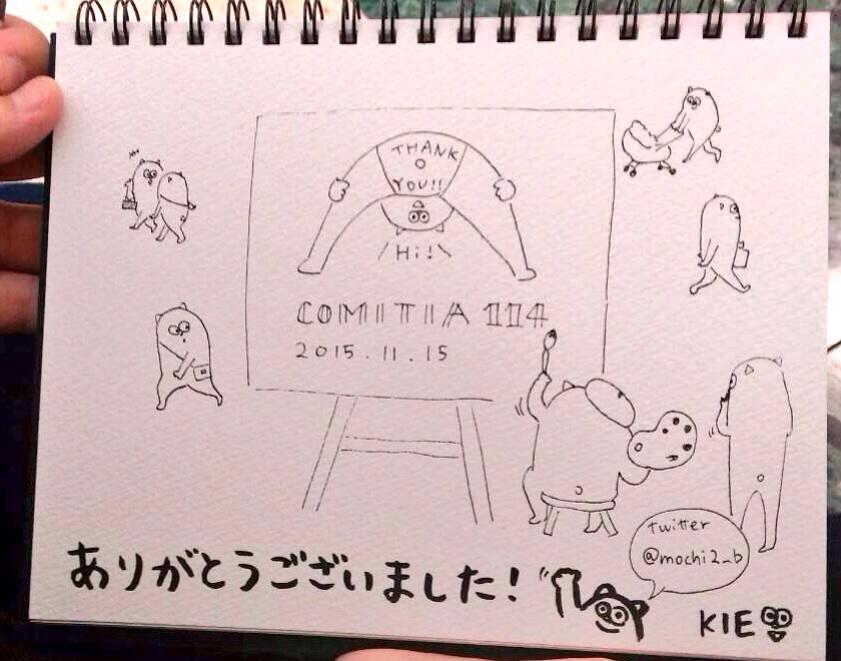 THANK
YOU!!
Hi!
COMITIA 114
2015.11.15
twitter
@mochi2_b
ありがとうございました!
KIE